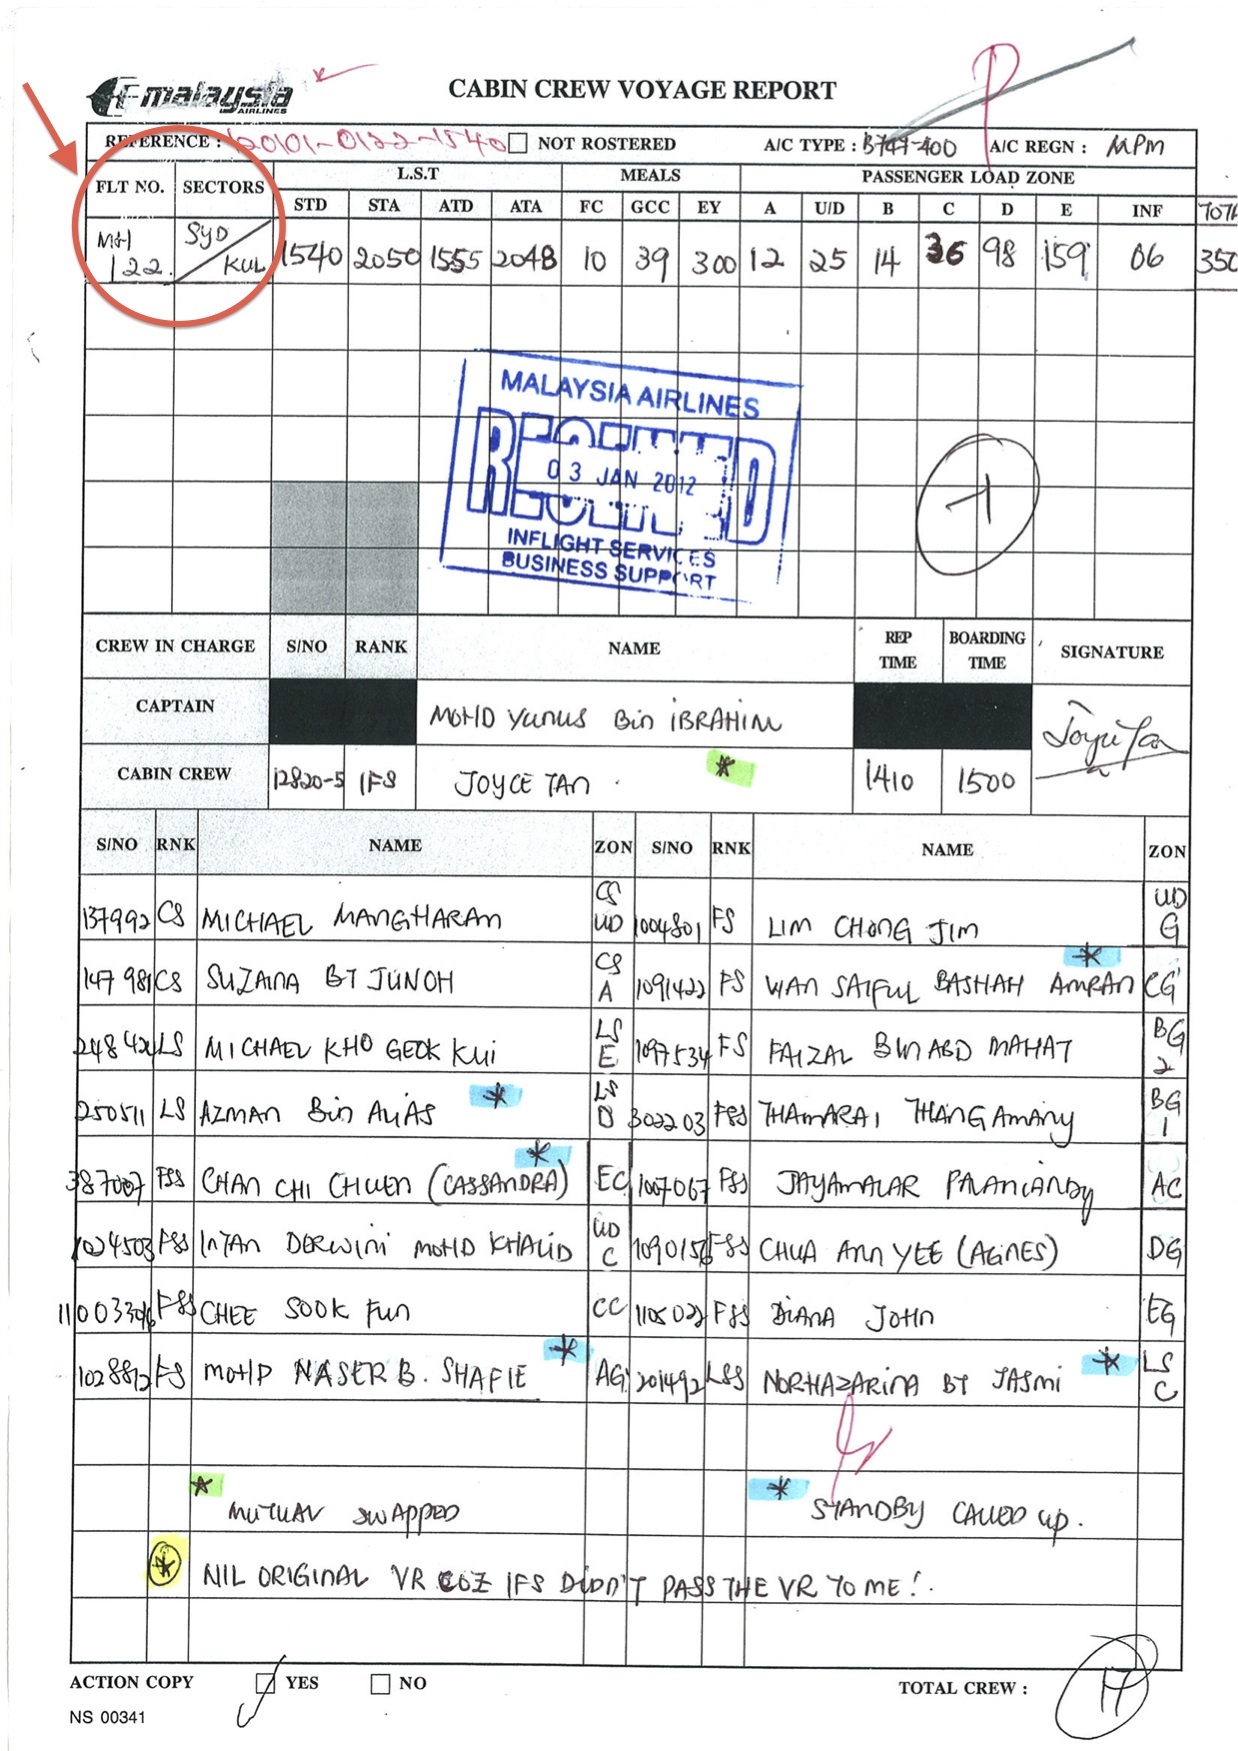 malaysia
AIRLINES
CABIN CREW VOYAGE REPORT
REFERENCE : 120101-0122-1540 NOT ROSTERED A/C TYPE : B747-400 A/C REGN : MPM
FLT NO. SECTORS L.S.T MEALS PASSENGER LOAD ZONE
STD STA ATD ATA FC GCC EY A U/D B C D E INF TOTA
MH 122. SYD/KUL 1540 2050 1555 2048 10 39 300 12 25 14 36 98 159 06 350
MALAYSIA AIRLINES
RECEIVED
03 JAN 2012
INFLIGHT SERVICES
BUSINESS SUPPORT
-1
CREW IN CHARGE S/NO RANK NAME REP TIME BOARDING TIME SIGNATURE
CAPTAIN MOHD YUNUS Bin IBRAHIM
CABIN CREW 12820-5 IFS JOYCE TAN . * 1410 1500 Joyce Tan
S/NO RNK NAME ZON S/NO RNK NAME ZON
137992 CS MICHAEL MANGHARAN CS UD 1004801 FS LIM CHONG JIM UD G
147981 CS SUZAINA BT JUNOH CS A 1091422 FS WAN SAIFUL BASHAH AMRAN * CG
248424 LS MICHAEL KHO GEOK KUI LS E 1097534 FS FAIZAL BIN ABD MAHAT BG 2
250511 LS AZMAN Bin ALIAS * LS D 302203 FSS THAMARAI THANGAMANY BG 1
387007 FSS CHAN CHI CHUEN (CASSANDRA) * EC 1007067 FSS JAYAMALAR PALANIANDY AC
1024503 FSS INTAN DERWINI MOHD KHALID UD C 1090156 FSS CHUA ANN YEE (AGNES) DG
FSS CHEE SOOK FUN CC 1105022 FSS DIANA JOHN EG
1028812 FS MOHD NASER B. SHAFIE * AG 201492 LSS NORHAZARINA BT JASMI * LS C
* MUTUAL SWAPPED * STANDBY CALLED UP.
* NIL ORIGINAL VR COZ IFS DIDN'T PASS THE VR TO ME!.
ACTION COPY YES NO TOTAL CREW : 17
NS 00341